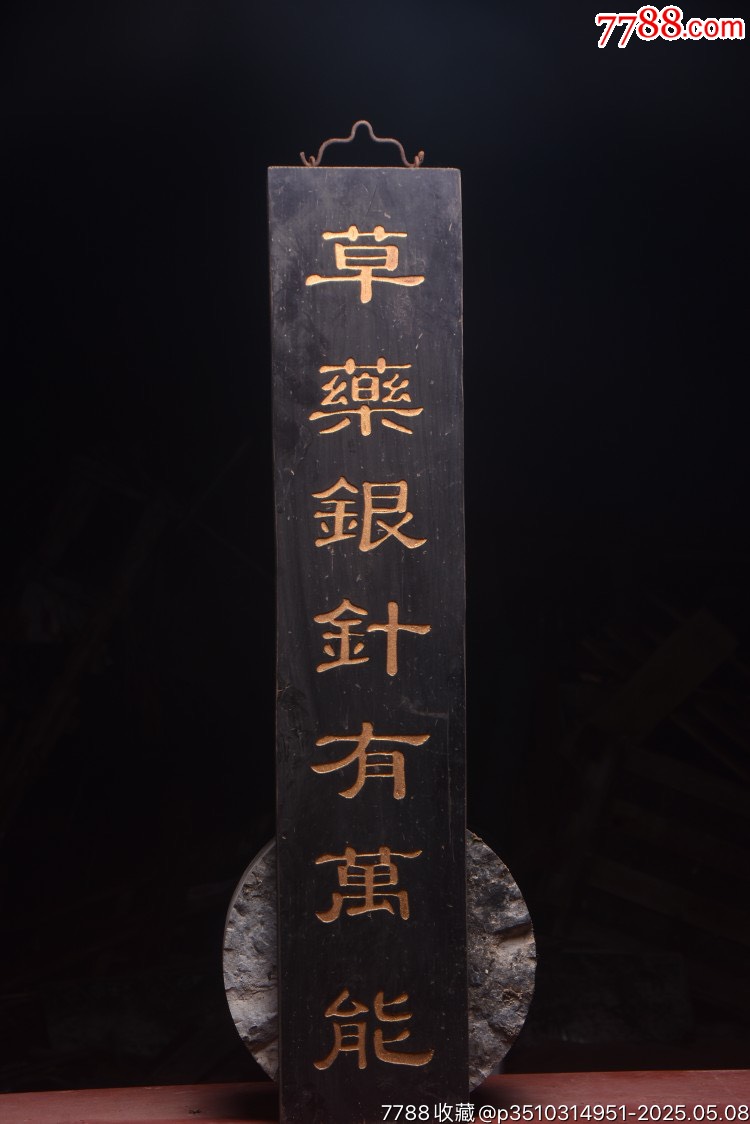 7788.com
草藥銀針有萬能
7788收藏@p3510314951-2025.05.08